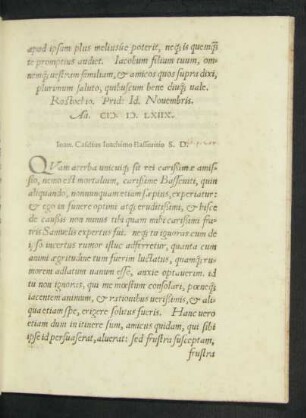 apud ipsum plus meliusúe poterit, neq; is quemq̃
te promptius audiet. Iacobum filium tuum, om
nemq; uestram familiam, & amicos quos supra dixi,
plurimum saluto, quibuscum bene diuq; uale.
Rostochio. Prid: Id. Nouembris.
Aō. CIↃ. IↃ. LXIIX.
Ioan. Caselius Ioachimo Basseuitio S. D.
QVam acerba unicuiq; sit rei carissimæ amis-
sio, nemo est mortalium, carissime Basseuiti, quin
aliquando, nonnunquam etiam sæpius, experiatur:
& ego in funere optimi atq; eruditissimi, & bisce
de causis non minus tibi quam mihi carissimi fra
tris Samuelis expertus sum. neq; tu ignoras cum de
eo incertus rumor istuc adferretur, quanta cum
animi ægritudine tum fuerim luctatus, quamq; ru-
morem adlatum uanum esse, anxie optauerim. id
tu non ignoras, qui me mœstum consolari, pœneq;
iacentem animum, & rationibus uerissimis, & ali
qua etiam spe, erigere solitus fueris. Hanc uero
etiam dum in itinere sum, amicus quidam, qui sibi
ipse id persuaserat, aluerat: sed frustra susceptam,
frustra